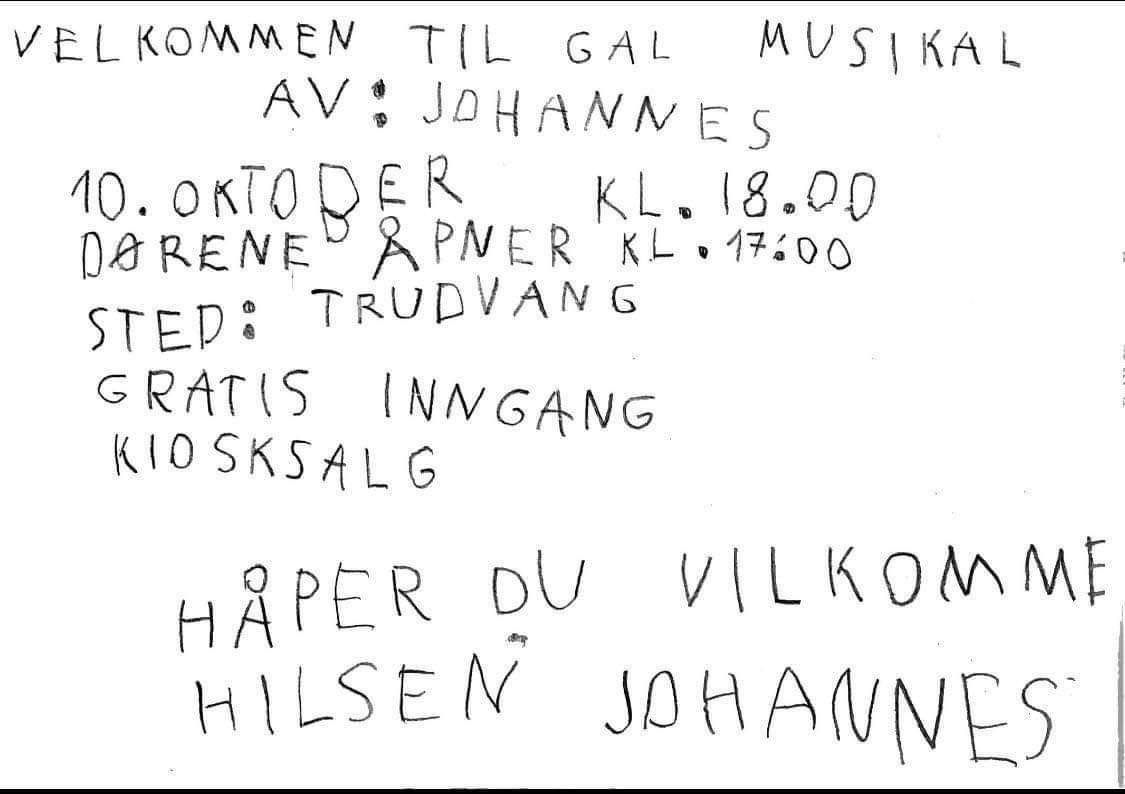 VELKOMMEN TIL GAL MUSIKAL
AV: JOHANNES
10. OKTOBER KL. 18.00
DØRENE ÅPNER KL. 17:00
STED: TRUDVANG
GRATIS INNGANG
KIOSKSALG
HÅPER DU VILKOMME
HILSEN JOHANNES